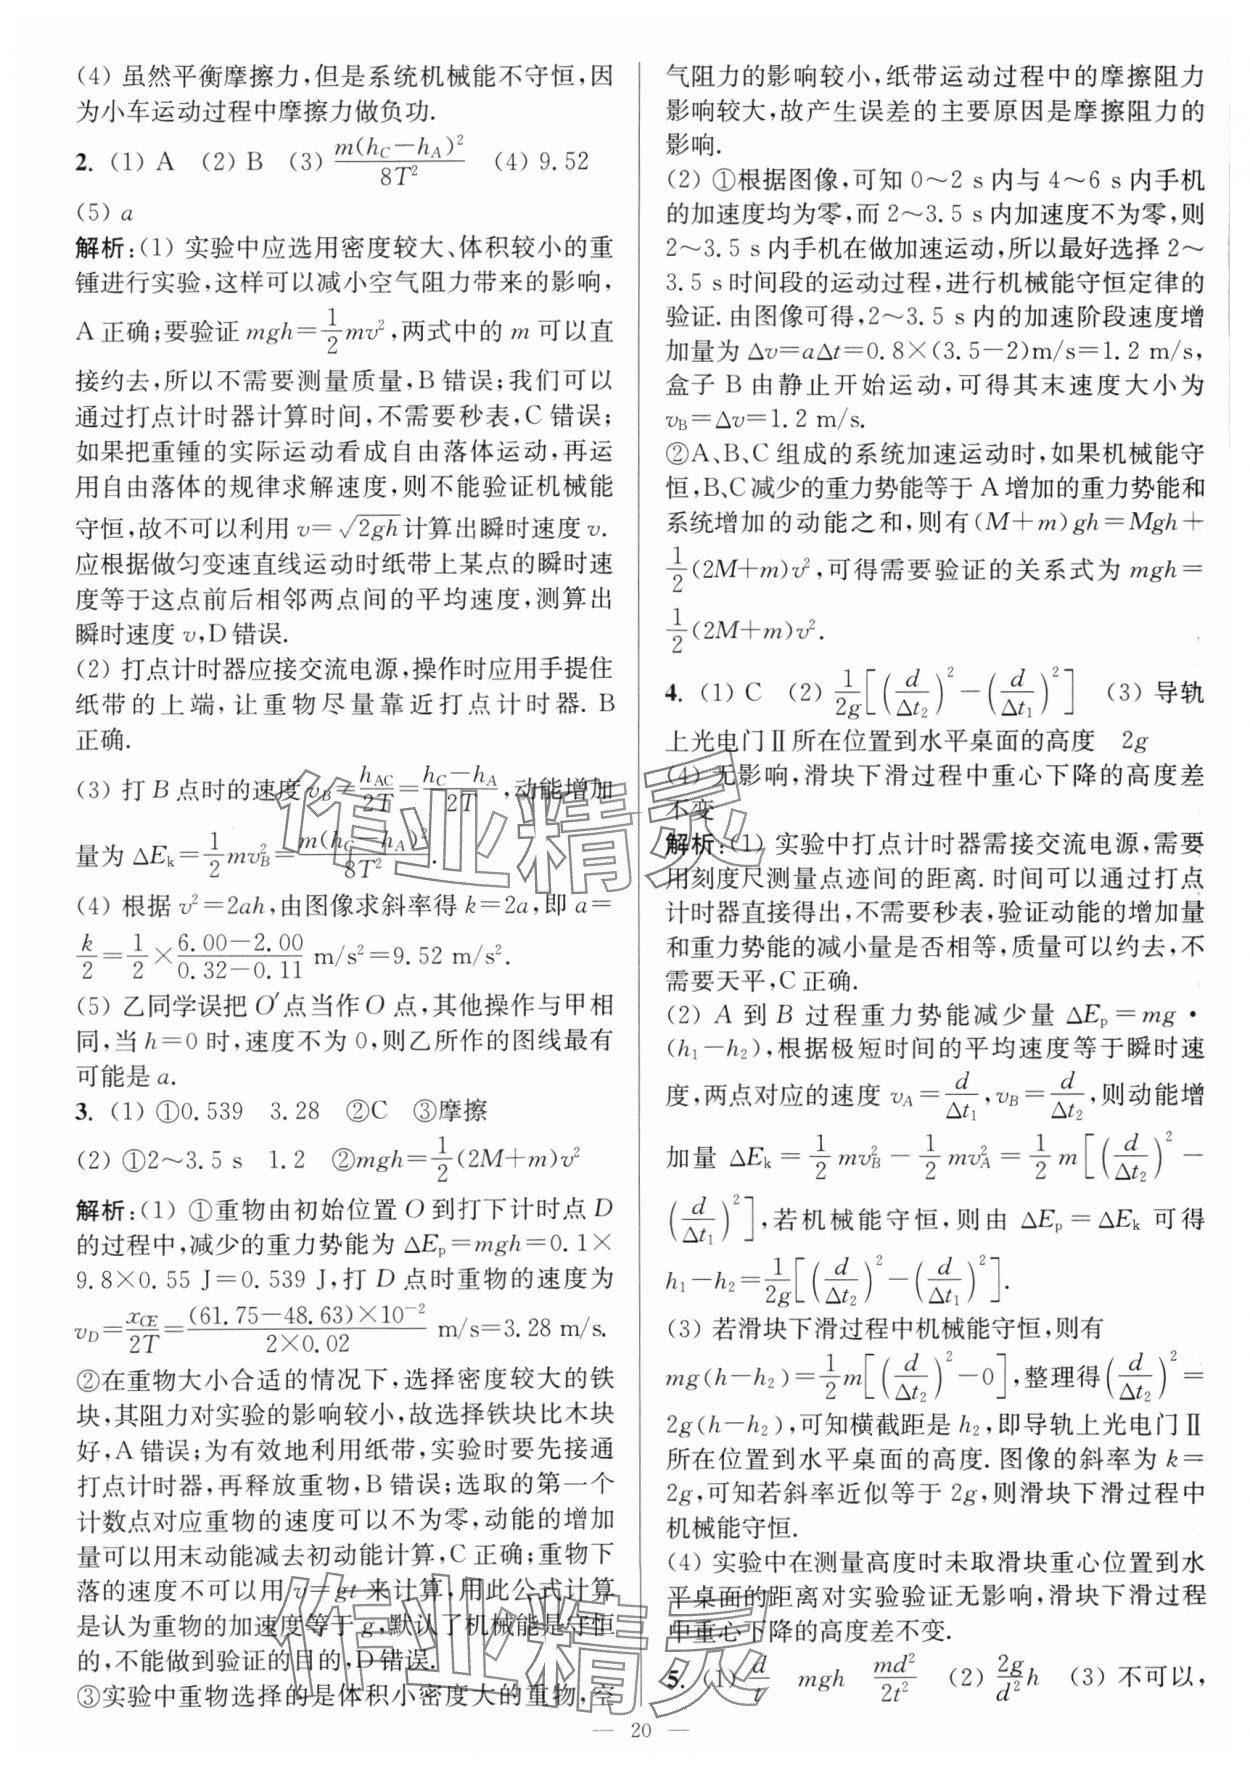 (4) 虽然平衡摩擦力,但是系统机械能不守恒,因
为小车运动过程中摩擦力做负功.
2. (1) A (2) B (3) m(h_C−h_A)²/8T² (4) 9.52
(5) a
解析:(1) 实验中应选用密度较大、体积较小的重
锤进行实验,这样可以减小空气阻力带来的影响,
A 正确;要验证 mgh=1/2mv²,两式中的 m 可以直
接约去,所以不需要测量质量,B 错误;我们可以
通过打点计时器计算时间,不需要秒表,C 错误;
如果把重锤的实际运动看成自由落体运动,再运
用自由落体的规律求解速度,则不能验证机械能
守恒,故不可以利用 v=√2gh计算出瞬时速度 v.
应根据做匀变速直线运动时纸带上某点的瞬时速
度等于这点前后相邻两点间的平均速度,测算出
瞬时速度 v,D 错误.
(2) 打点计时器应接交流电源,操作时应用手提住
纸带的上端,让重物尽量靠近打点计时器. B
正确.
(3) 打 B 点时的速度 v_B=h_AC/2T=(h_C−h_A)/2T,动能增加
量为 ΔE_k=1/2mv_B²=m(h_C−h_A)²/8T².
(4) 根据 v²=2ah,由图像求斜率得 k=2a,即 a=
k/2=1/2×(6.00−2.00)/(0.32−0.11) m/s²=9.52 m/s².
(5) 乙同学误把 O′点当作 O 点,其他操作与甲相
同,当 h=0 时,速度不为 0,则乙所作的图线最有
可能是 a.
3. (1) ①0.539 3.28 ②C ③摩擦
(2) ①2～3.5 s 1.2 ②mgh=1/2(2M+m)v²
解析:(1) ①重物由初始位置 O 到打下计时点 D
的过程中,减少的重力势能为 ΔE_p=mgh=0.1×
9.8×0.55 J=0.539 J,打 D 点时重物的速度为
v_D=x_CE/2T=(61.75−48.63)×10⁻²/(2×0.02) m/s=3.28 m/s.
②在重物大小合适的情况下,选择密度较大的铁
块,其阻力对实验的影响较小,故选择铁块比木块
好,A 错误;为有效地利用纸带,实验时要先接通
打点计时器,再释放重物,B 错误;选取的第一个
计数点对应重物的速度可以不为零,动能的增加
量可以用末动能减去初动能计算,C 正确;重物下
落的速度不可以用 v=gt 来计算,用此公式计算
是认为重物的加速度等于 g,默认了机械能是守恒
的,不能做到验证的目的,D 错误.
③实验中重物选择的是体积小密度大的重物,空
气阻力的影响较小,纸带运动过程中的摩擦阻力
影响较大,故产生误差的主要原因是摩擦阻力的
影响.
(2) ①根据图像,可知 0～2 s 内与 4～6 s 内手机
的加速度均为零,而 2～3.5 s 内加速度不为零,则
2～3.5 s 内手机在做加速运动,所以最好选择 2～
3.5 s 时间段的运动过程,进行机械能守恒定律的
验证. 由图像可得,2～3.5 s 内的加速阶段速度增
加量为 Δv=aΔt=0.8×(3.5−2)m/s=1.2 m/s,
盒子 B 由静止开始运动,可得其末速度大小为
v_B=Δv=1.2 m/s.
②A、B、C 组成的系统加速运动时,如果机械能守
恒,B、C 减少的重力势能等于 A 增加的重力势能和
系统增加的动能之和,则有 (M+m) gh=Mgh+
1/2(2M+m)v²,可得需要验证的关系式为 mgh=
1/2(2M+m)v².
4. (1) C (2) 1/2g[(d/Δt₂)²−(d/Δt₁)²] (3) 导轨
上光电门Ⅱ所在位置到水平桌面的高度 2g
(4) 无影响,滑块下滑过程中重心下降的高度差
不变
解析:(1) 实验中打点计时器需接交流电源,需要
用刻度尺测量点迹间的距离. 时间可以通过打点
计时器直接得出,不需要秒表,验证动能的增加量
和重力势能的减小量是否相等,质量可以约去,不
需要天平,C 正确.
(2) A 到 B 过程重力势能减少量 ΔE_p=mg·
(h₁−h₂),根据极短时间的平均速度等于瞬时速
度,两点对应的速度 v_A=d/Δt₁,v_B=d/Δt₂,则动能增
加量 ΔE_k=1/2mv_B²−1/2mv_A²=1/2m[(d/Δt₂)²−
(d/Δt₁)²],若机械能守恒,则由 ΔE_p=ΔE_k 可得
h₁−h₂=1/2g[(d/Δt₂)²−(d/Δt₁)²].
(3) 若滑块下滑过程中机械能守恒,则有
mg(h−h₂)=1/2m[(d/Δt₂)²−0],整理得(d/Δt₂)²=
2g(h−h₂),可知横截距是 h₂,即导轨上光电门Ⅱ
所在位置到水平桌面的高度. 图像的斜率为 k=
2g,可知若斜率近似等于 2g,则滑块下滑过程中
机械能守恒.
(4) 实验中在测量高度时未取滑块重心位置到水
平桌面的距离对实验验证无影响,滑块下滑过程
中重心下降的高度差不变.
5. (1) d/t mgh md²/2t² (2) 2g/d²h (3) 不可以,
— 20 —
作业精灵
作业精灵